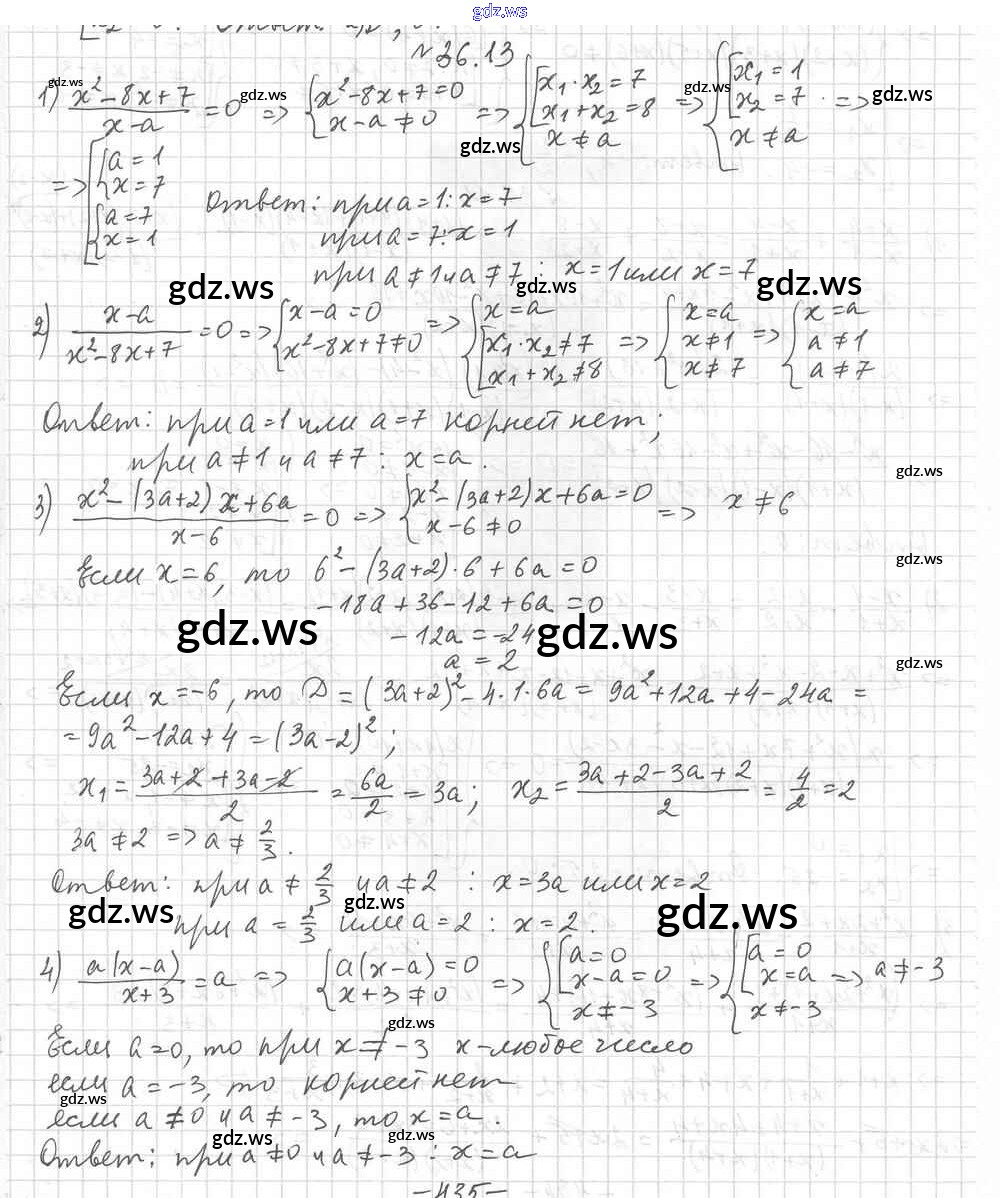 gdz.ws
№ 36.13
1) (x² - 8x + 7)/(x - a) = 0 => { x² - 8x + 7 = 0; x - a ≠ 0 => { [ x₁ · x₂ = 7; x₁ + x₂ = 8; x ≠ a => { [ x₁ = 1; x₂ = 7; x ≠ a =>
=> [ { a = 1; x = 7; { a = 7; x = 1
Ответ: при a = 1: x = 7
при a = 7: x = 1
при a ≠ 1 и a ≠ 7 : x = 1 или x = 7
2) (x - a)/(x² - 8x + 7) = 0 => { x - a = 0; x² - 8x + 7 ≠ 0 => { x = a; [ x₁ · x₂ ≠ 7; x₁ + x₂ ≠ 8 => { x = a; x ≠ 1; x ≠ 7 => { x = a; a ≠ 1; a ≠ 7
Ответ: при a = 1 или a = 7 корней нет;
при a ≠ 1 и a ≠ 7 : x = a.
3) (x² - (3a + 2) x + 6a)/(x - 6) = 0 => { x² - (3a + 2)x + 6a = 0; x - 6 ≠ 0 => x ≠ 6
Если x = 6, то 6² - (3a + 2) · 6 + 6a = 0
- 18a + 36 - 12 + 6a = 0
- 12a = -24
a = 2
Если x = -6, то D = (3a + 2)² - 4 · 1 · 6a = 9a² + 12a + 4 - 24a =
= 9a² - 12a + 4 = (3a - 2)² ;
x₁ = (3a + 2 + 3a - 2)/2 = 6a/2 = 3a ; x₂ = (3a + 2 - 3a + 2)/2 = 4/2 = 2
3a ≠ 2 => a ≠ 2/3.
Ответ: при a ≠ 2/3 и a ≠ 2 : x = 3a или x = 2
при a = 2/3 или a = 2 : x = 2.
4) a(x - a)/(x + 3) = a => { a(x - a) = 0; x + 3 ≠ 0 => { [ a = 0; x - a = 0; x ≠ -3 => { [ a = 0; x = a; x ≠ -3 => a ≠ -3
Если a = 0, то при x ≠ -3 x - любое число
если a = -3, то корней нет
если a ≠ 0 и a ≠ -3, то x = a.
Ответ: при a ≠ 0 и a ≠ -3 : x = a
- 435 -